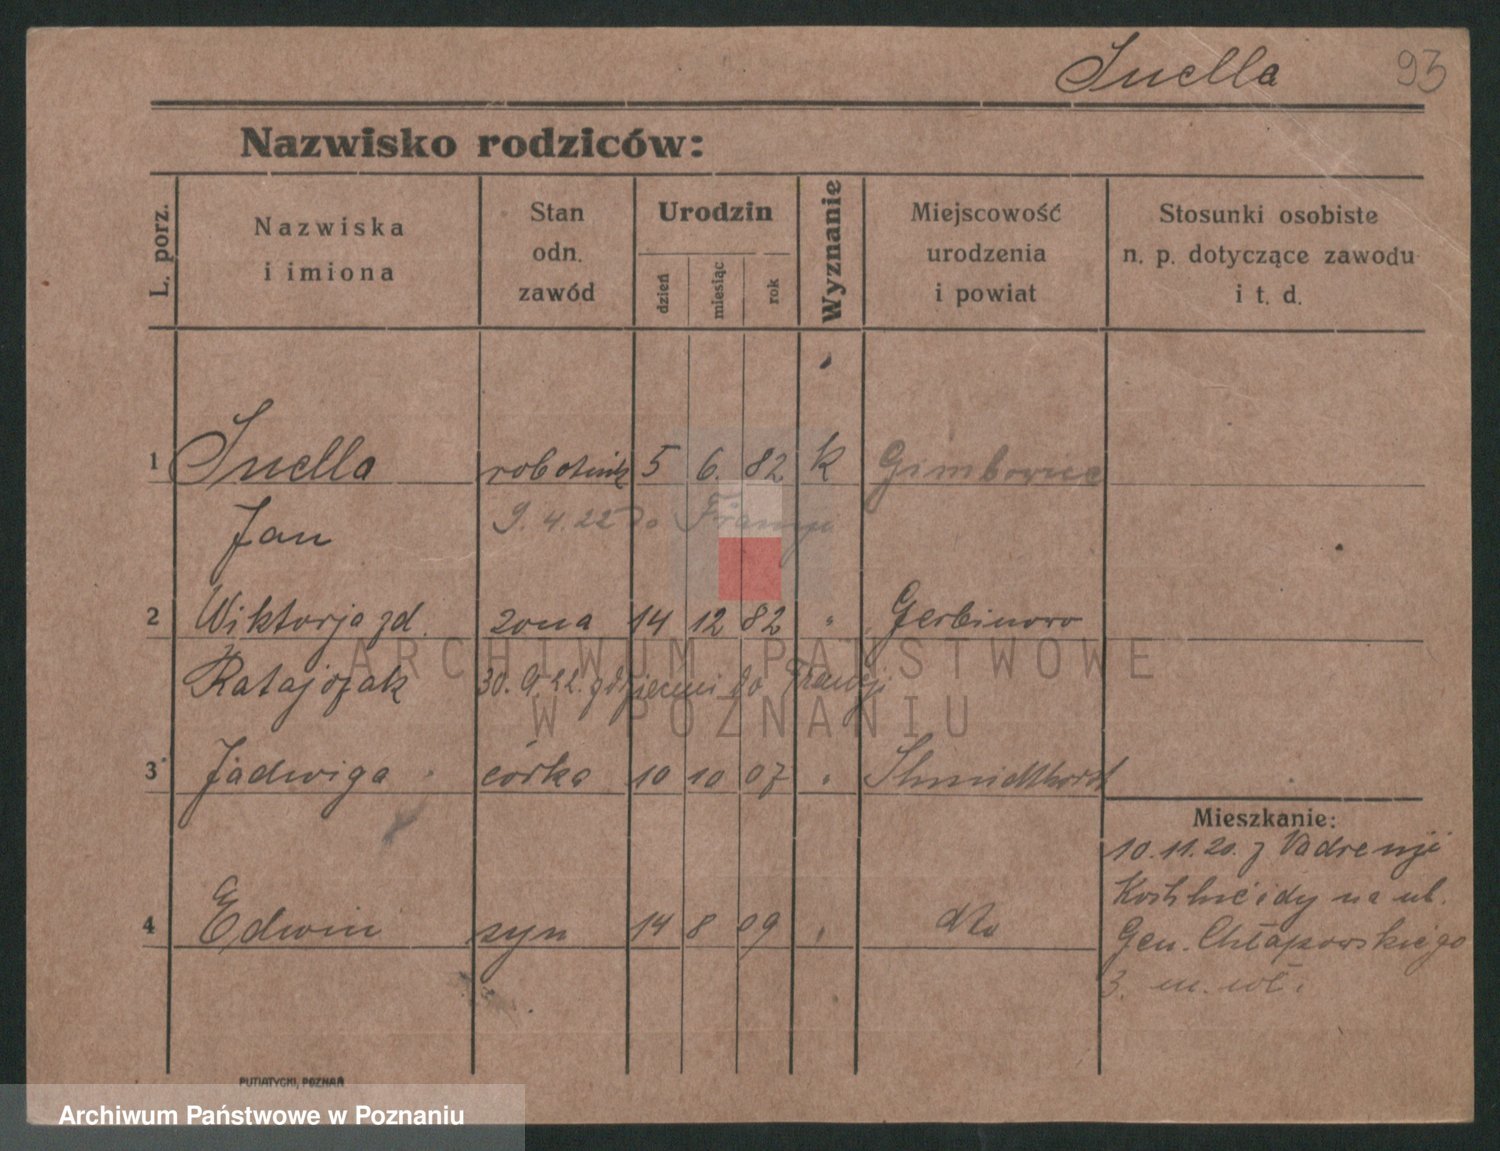 Snella 93
Nazwisko rodziców:
L. porz.
Nazwiska
i imiona
Stan
odn.
zawód
Urodzin
dzień
miesiąc
rok
Wyznanie
Miejscowość
urodzenia
i powiat
Stosunki osobiste
n. p. dotyczące zawodu
i t. d.
1 Snella robotnik 5 6. 82 k
Jan 9. 4. 22 do Francji
2 Wiktorja zd. żona 14 12 82 " Gerbinowo
Ratajczak 30. 9. 22. z dziećmi do Francji
3 Jadwiga córka 10 10 07 " Shmidthorst
Mieszkanie:
10. 11. 20. z
na ul.
4 Edwin syn 14 8 09 " dto
Gen. Chłapowskiego
3. m.
PUTIATYCKI, POZNAŃ
ARCHIWUM PAŃSTWOWE
W POZNANIU
Archiwum Państwowe w Poznaniu